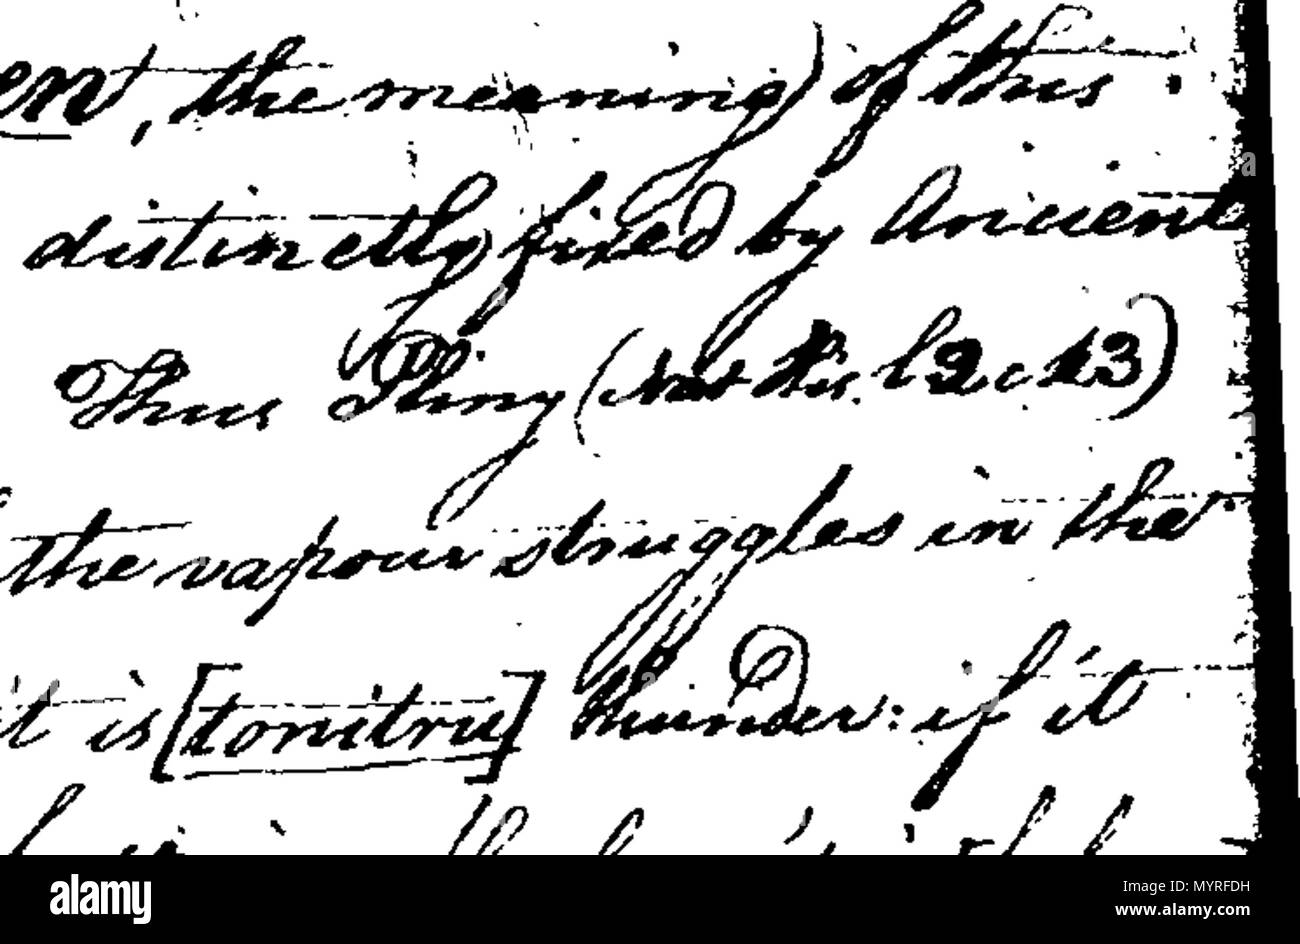 en, the meaning of this
distinctly fixed by Ancient
Thus Pliny (Nat His. l 2. c 43)
the vapour struggles in the
it is [tonitru] thunder: if it
alamy
Image ID: MYRFDH
www.alamy.com